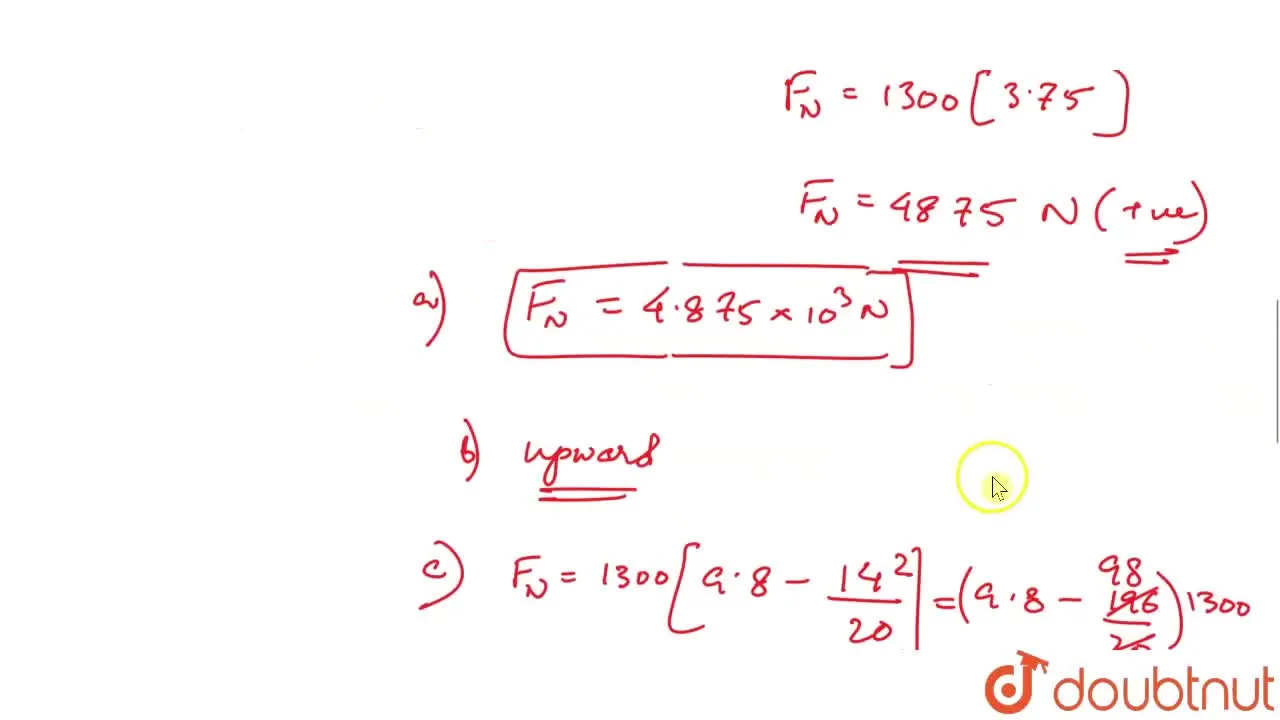 F_N = 1300 [3.75]
F_N = 4875 N (+ve)
a) F_N = 4.875 × 10³ N
b) upward
c) F_N = 1300 [9.8 − 14²/20] = (9.8 − 98 196/20) 1300
doubtnut